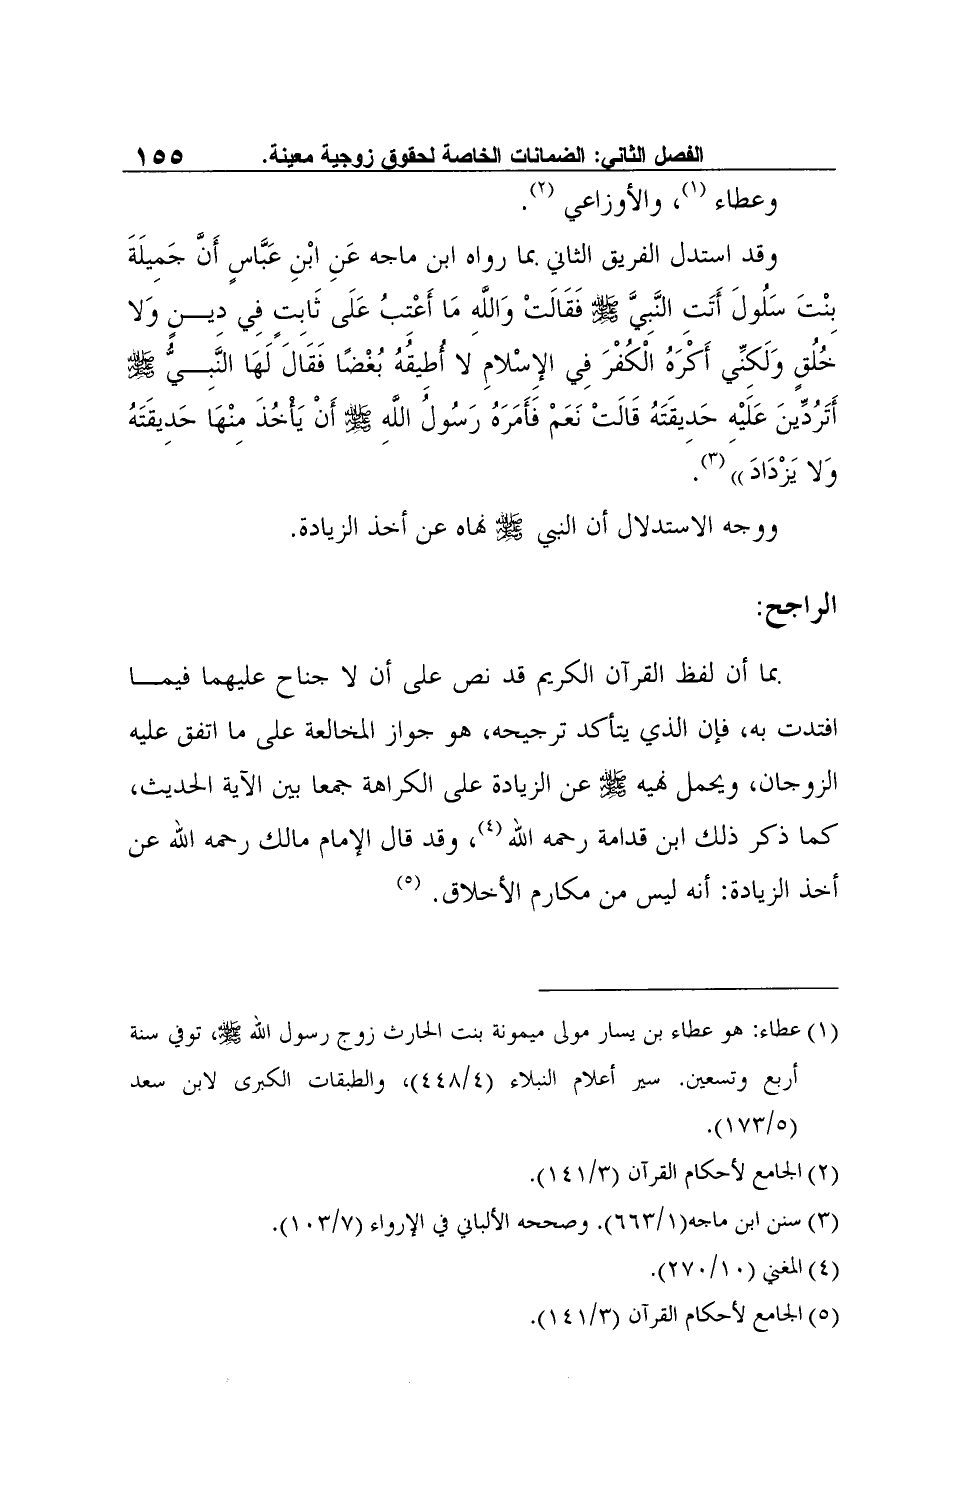 الفصل الثاني: الضمانات الخاصة لحقوق زوجية معينة. ١٥٥
وعطاء (١)، والأوزاعي (٢).
وقد استدل الفريق الثاني بما رواه ابن ماجه عَنِ ابْنِ عَبَّاسٍ أَنَّ جَمِيلَةَ
بِنْتَ سَلُولَ أَتَتِ النَّبِيَّ ﷺ فَقَالَتْ وَاللَّهِ مَا أَعْتِبُ عَلَى ثَابِتٍ فِي دِيـنٍ وَلا
خُلُقٍ وَلَكِنِّي أَكْرَهُ الْكُفْرَ فِي الإِسْلامِ لا أُطِيقُهُ بُغْضًا فَقَالَ لَهَا النَّبِـيُّ ﷺ
أَتَرُدِّينَ عَلَيْهِ حَدِيقَتَهُ قَالَتْ نَعَمْ فَأَمَرَهُ رَسُولُ اللَّهِ ﷺ أَنْ يَأْخُذَ مِنْهَا حَدِيقَتَهُ
وَلا يَزْدَادَ » (٣).
ووجه الاستدلال أن النبي ﷺ نهاه عن أخذ الزيادة.
الراجح:
بما أن لفظ القرآن الكريم قد نص على أن لا جناح عليهما فيمـا
افتدت به، فإن الذي يتأكد ترجيحه، هو جواز المخالعة على ما اتفق عليه
الزوجان، ويحمل نهيه ﷺ عن الزيادة على الكراهة جمعا بين الآية الحديث،
كما ذكر ذلك ابن قدامة رحمه الله (٤)، وقد قال الإمام مالك رحمه الله عن
أخذ الزيادة: أنه ليس من مكارم الأخلاق. (٥)
(١) عطاء: هو عطاء بن يسار مولى ميمونة بنت الحارث زوج رسول الله ﷺ، توفي سنة
أربع وتسعين. سير أعلام النبلاء (٤٤٨/٤)، والطبقات الكبرى لابن سعد
(١٧٣/٥).
(٢) الجامع لأحكام القرآن (١٤١/٣).
(٣) سنن ابن ماجه(٦٦٣/١). وصححه الألباني في الإرواء (١٠٣/٧).
(٤) المغني (٢٧٠/١٠).
(٥) الجامع لأحكام القرآن (١٤١/٣).